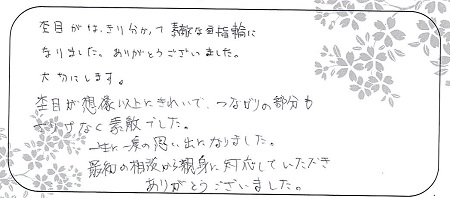 杢目がはっきり分かって素敵な指輪に
なりました。ありがとうございました。
大切にします。
杢目が想像以上にきれいで、つながりの部分も
さりげなく素敵でした。
一生に一度の思い出になりました。
最初の相談から親身に対応していただき
ありがとうございました。